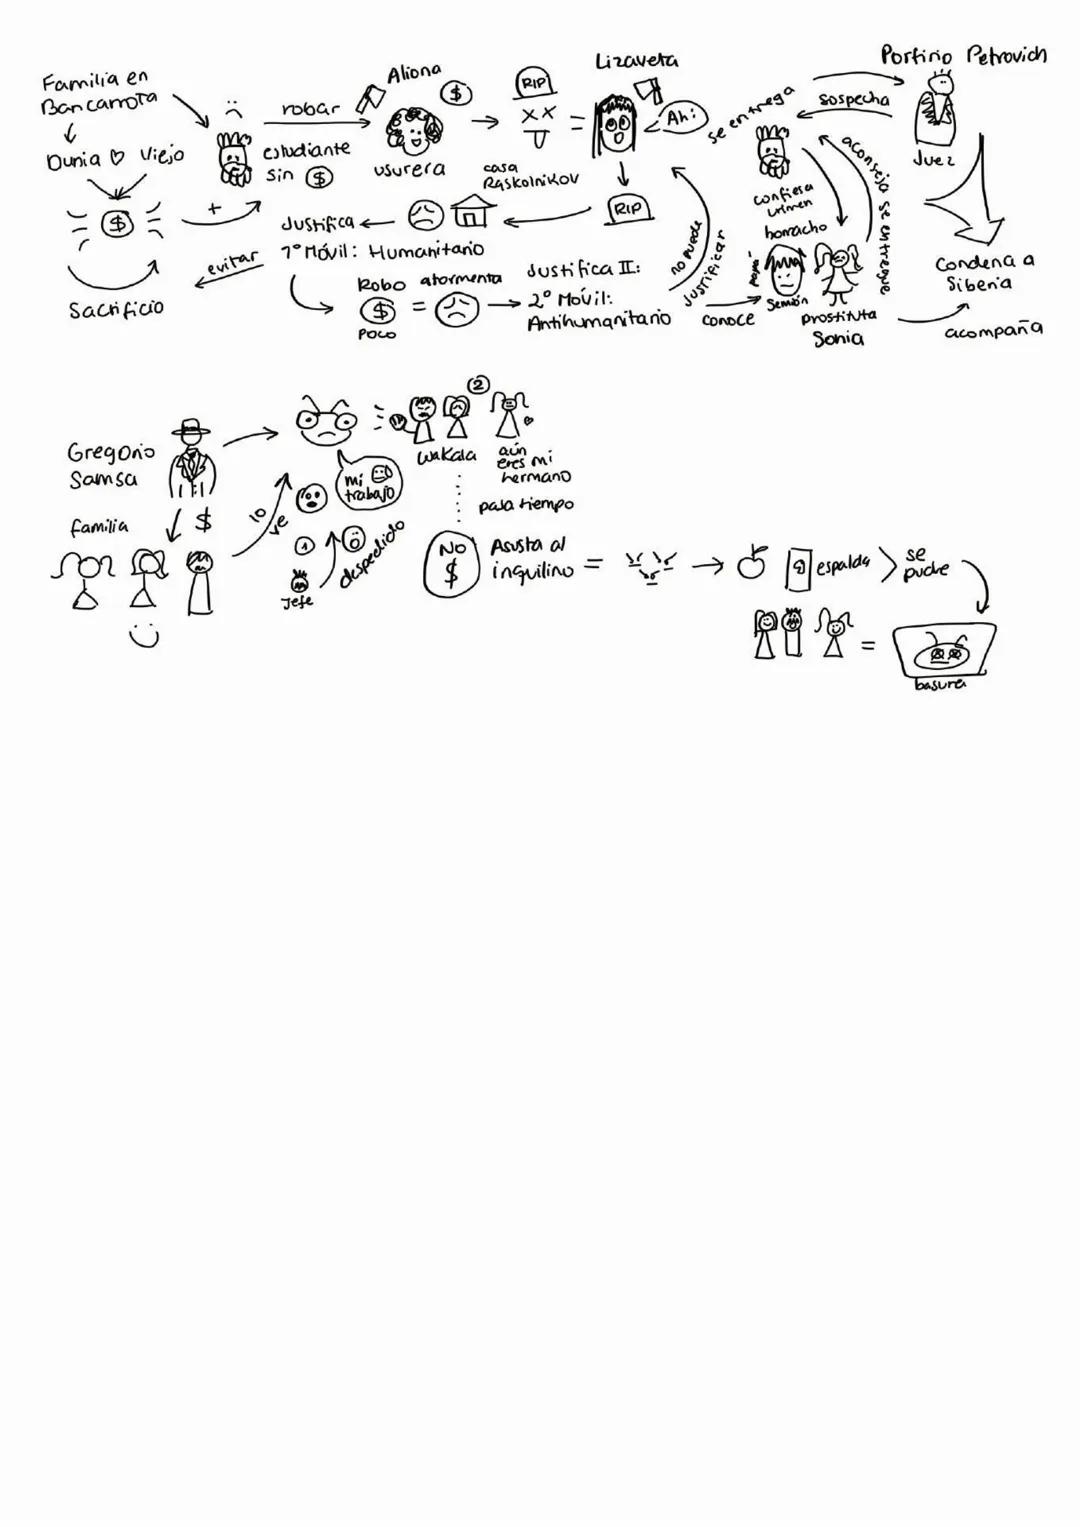 Familia en
Bancarrota
Dunia Viejo
$
Sacrificio
+
evitar
robar
estudiante
sin $
Aliona
$
usurera
RIP
XX
=
Lizaveta
Ah!
RIP
casa
Raskolnikov
Justifica
1° Móvil: Humanitario
Robo atormenta
$ =
Poco
Justifica II:
2° Móvil:
Antihumanitario
no puede
Justificar
conoce
se entrega
confiesa
crimen
borracho
papá
Semión
prostituta
Sonia
aconseja se entregue
sospecha
Porfirio Petrovich
Juez
Condena a
Siberia
acompaña
Gregorio
Samsa
$
familia
lo
ve
mi
trabajo
1
Jefe
despedido
2
wakala
aún
eres mi
hermano
pasa tiempo
NO
$
Asusta al
inquilino =
espalda > se
pudre
=
basura